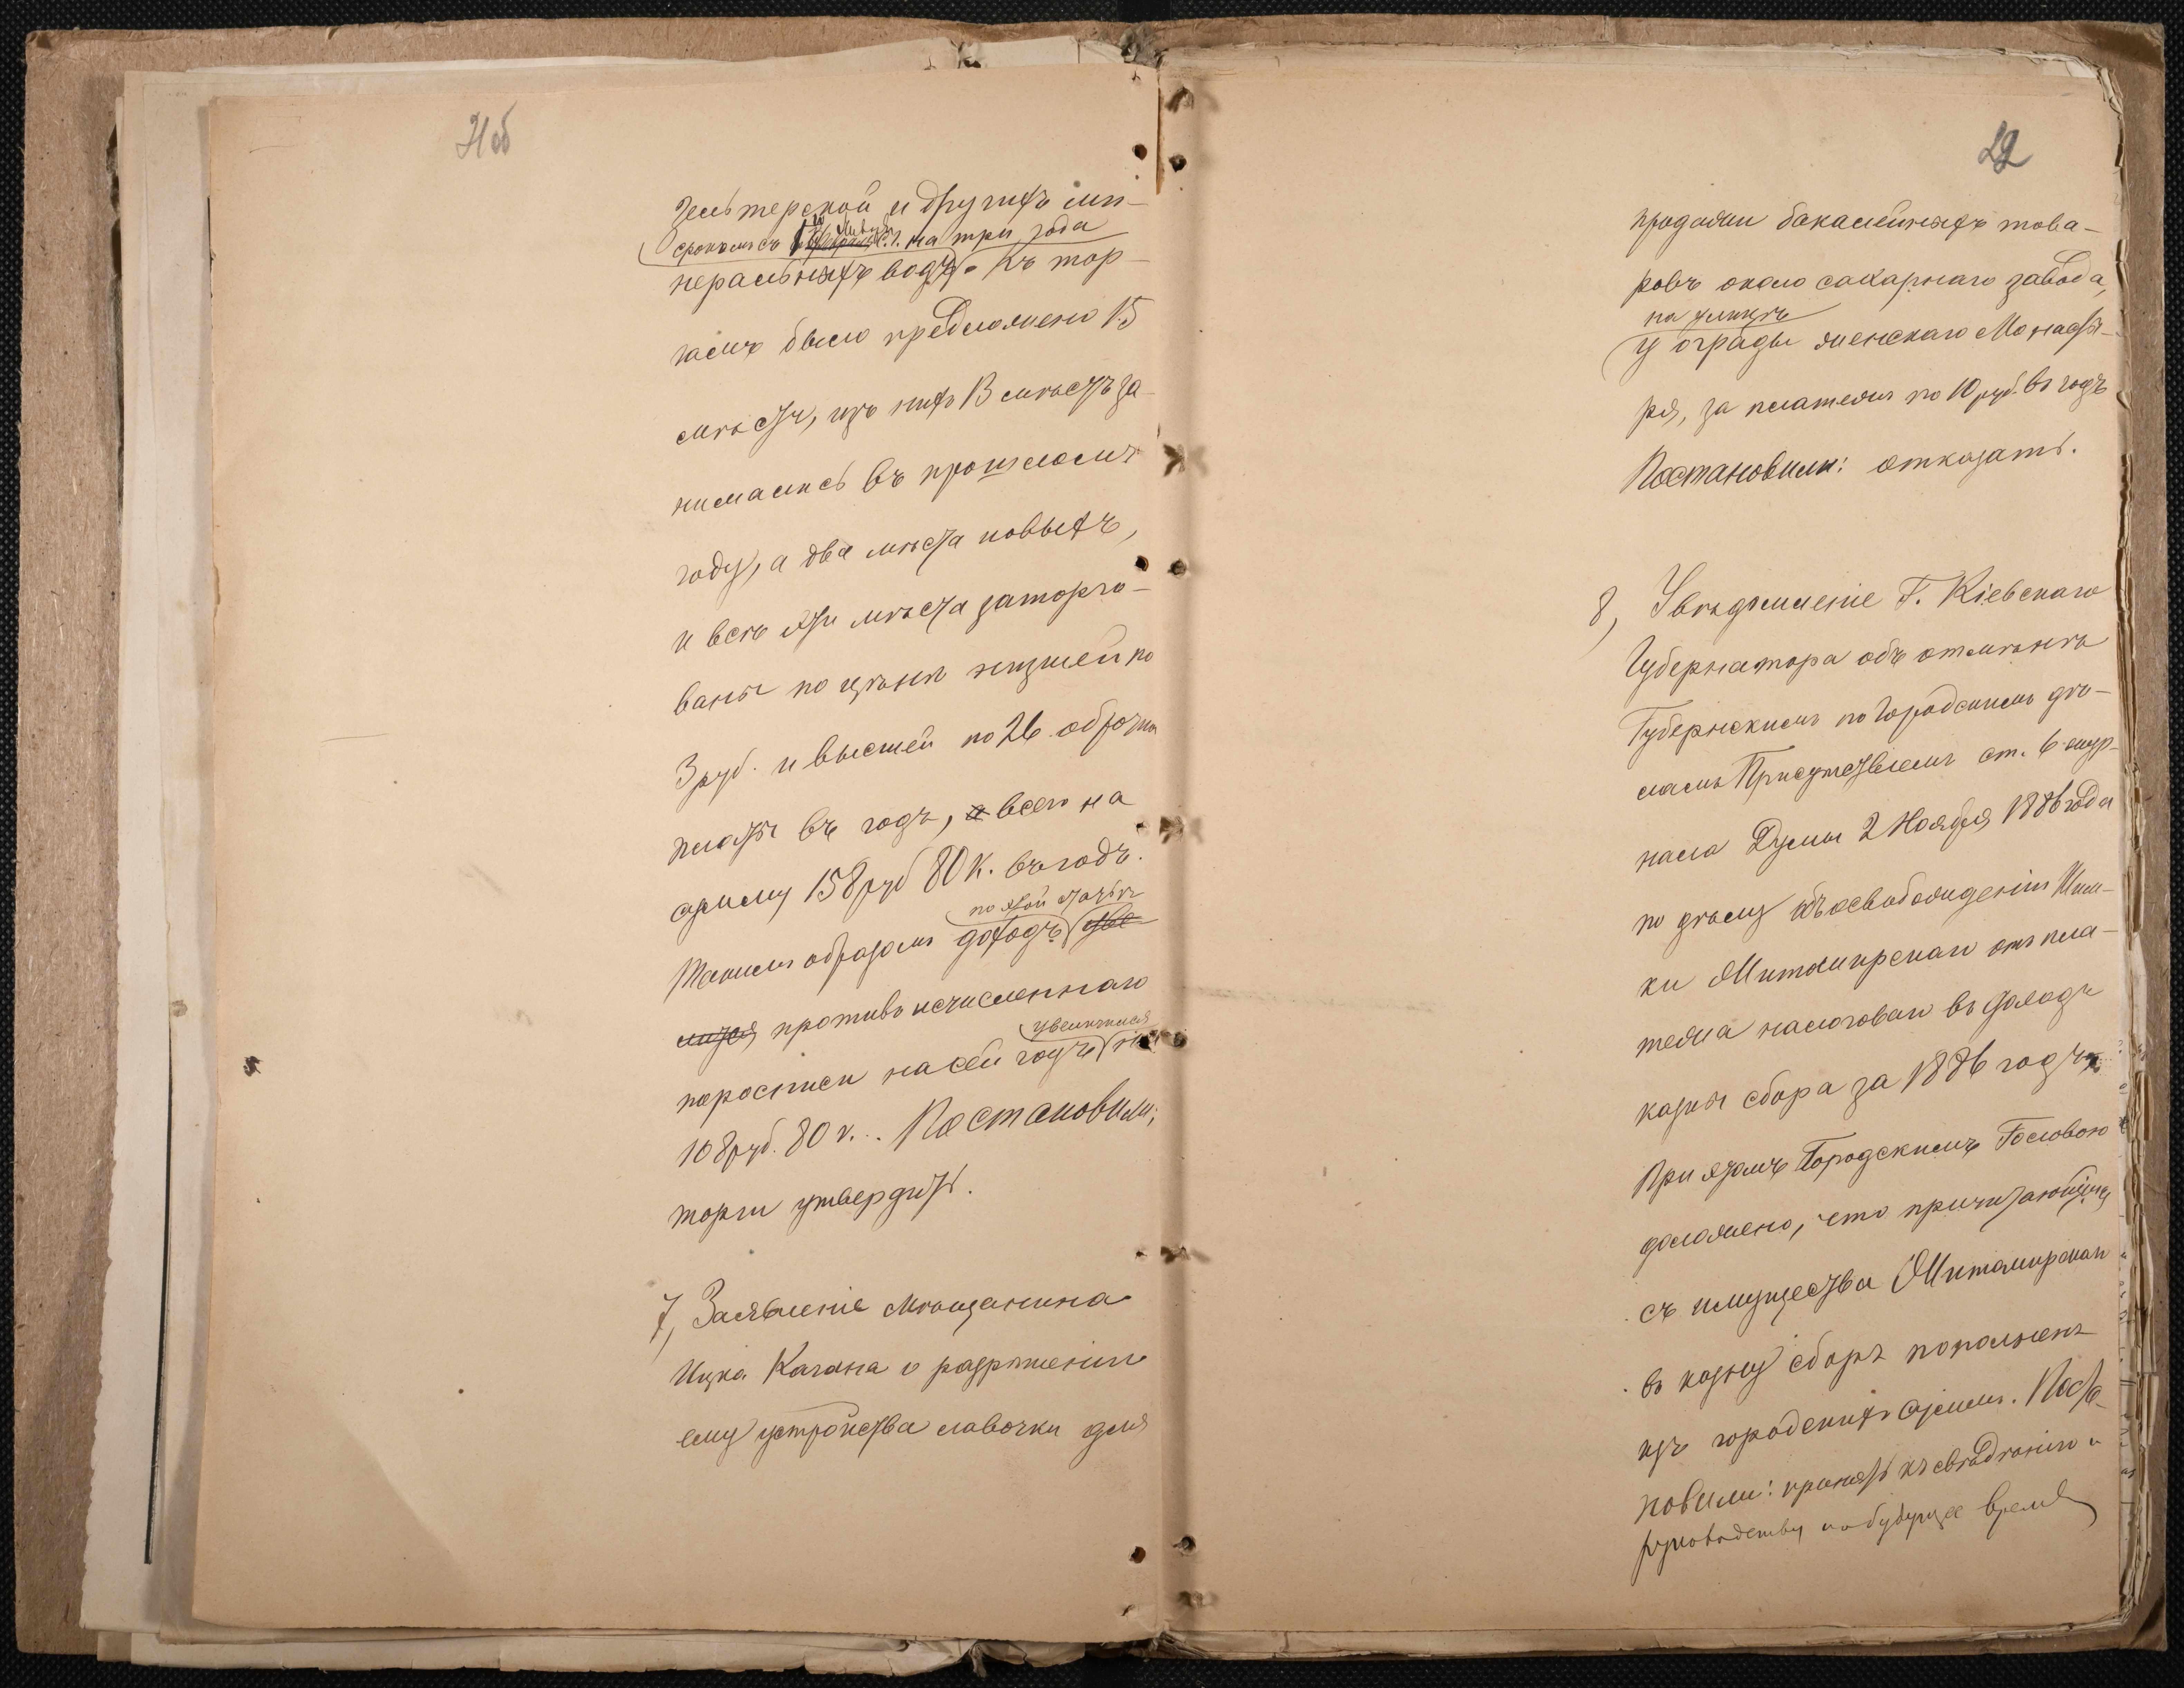 21 об
зельтерской и других ми-
срокомъ съ 1го Января с.г. на три года
неральныхъ водъ. Къ тор-
гамъ было предложено 15
мѣстъ, изъ нихъ 13 мѣстъ за-
нимались въ прошломъ
году, а два мѣста новыхъ,
и всѣ эти мѣста заторго-
ваны по цѣнѣ низшей по
3 руб. и высшей по 26 оброчной
платы въ годъ, а всего на
сумму 158 руб 80 к. въ годъ.
по этой статьѣ
Такимъ образомъ доходъ
противъ исчисленнаго
увеличился
по росписи на сей годъ на
108 руб. 80 к. Постановили:
торги утвердить.
7, Заявленіе мѣщанина
Ицка Кагана о разрѣшеніи
ему устройства лавочки для
22
продажи бакалейныхъ това-
ровъ около сахарнаго завода,
на улицѣ
у ограды женскаго Монасты-
ря, за платежъ по 10 руб. въ годъ
Постановили: отказать.
8, Увѣдомленіе Г. Кіевскаго
Губернатора объ отмѣнѣ
Губернскимъ по Городскимъ дѣ-
ламъ Присутствіемъ ст. 6 жур-
нала Думы 2 Ноября 1886 года
по дѣлу объ освобожденіи
ки Житомирской отъ пла-
тежа налоговаго въ доходъ
казны сбора за 1886 годъ.
При этомъ Городскимъ Головою
доложено, что причитающійся
съ имущества Житомирской
въ казну сборъ пополненъ
изъ городскихъ суммъ. Поста-
новили: принять къ свѣдѣнію и
руководству на будущее время